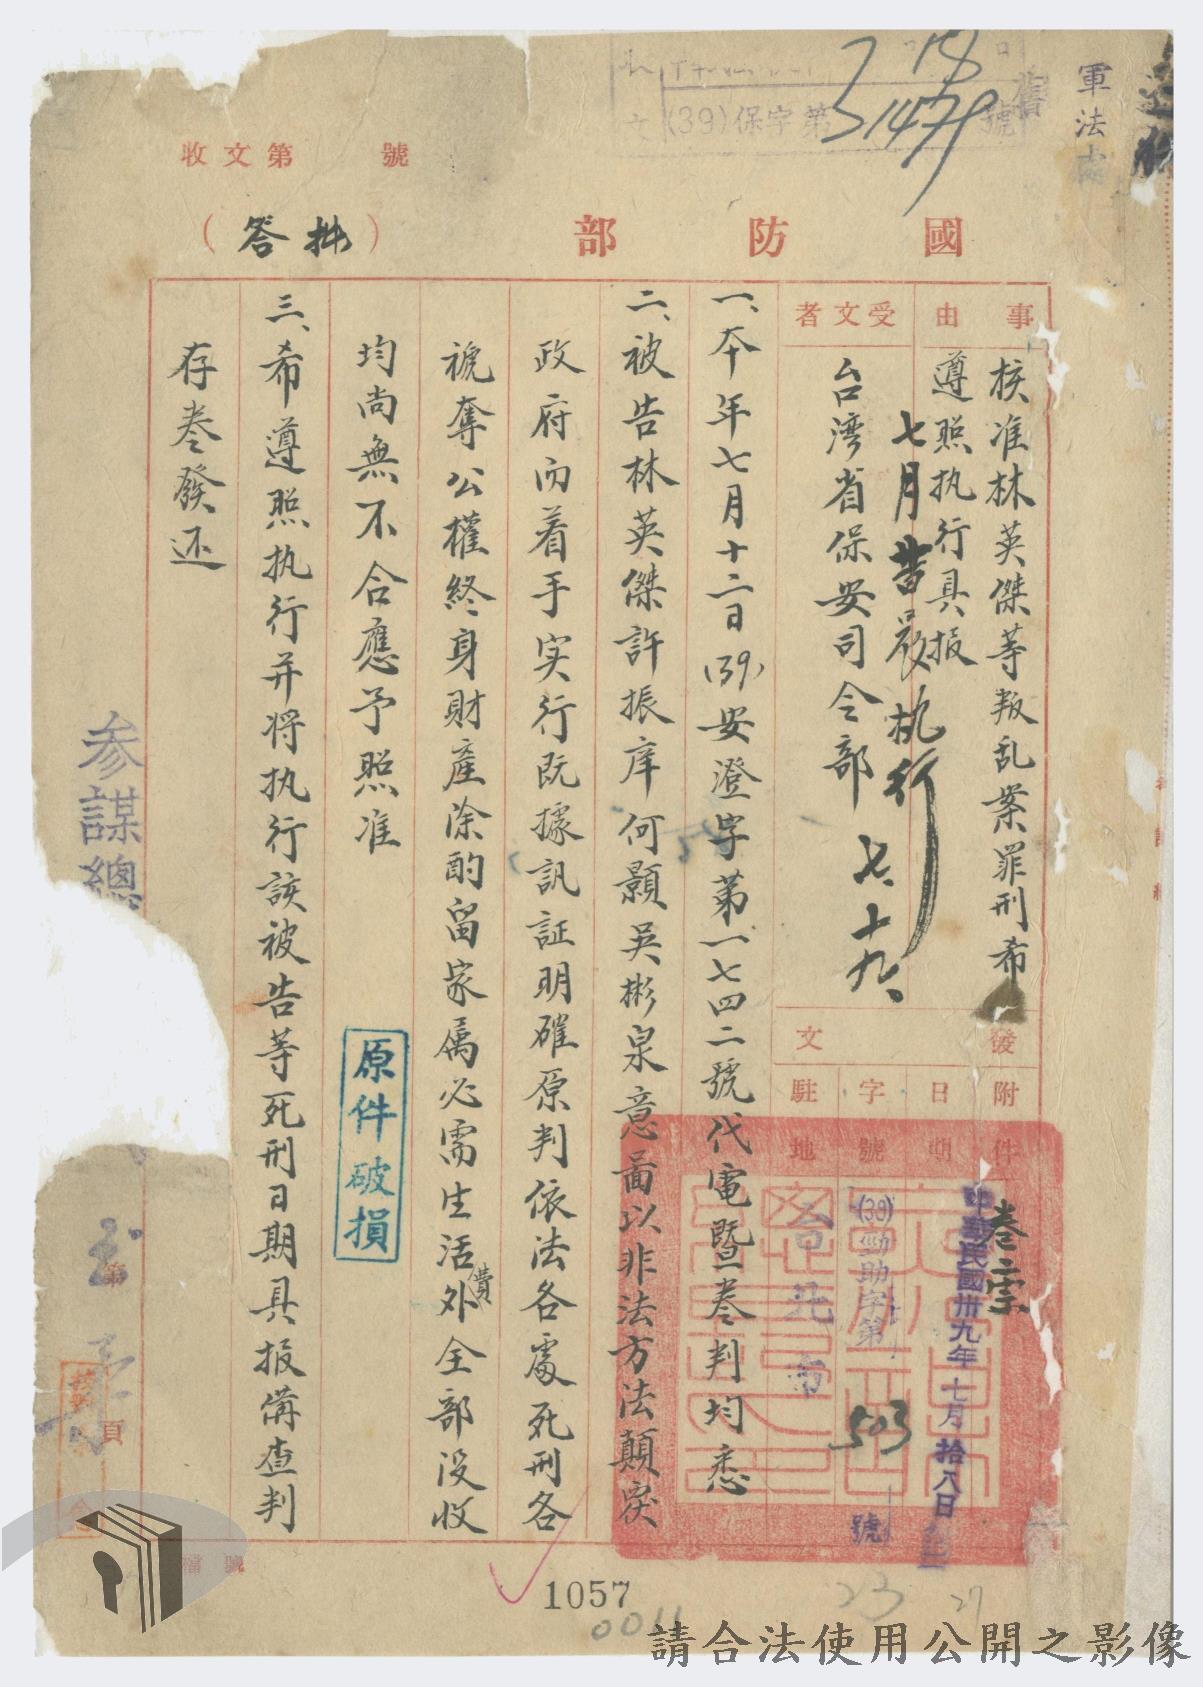 軍法處
(39)保字第
31479
號
收文第 號
國防部
(批答)
事由
核准林英傑等叛乱案罪刑希
遵照执行具报
受文者
台湾省保安司令部
七月廿晨执行
七、十九、
發文
附件
卷宗
日期
中華民國卅九年七月拾八日
字號
(39)勁助字第
503
號
駐地
台北市
一、本年七月十二日(39)安澄字第一七四二號代電暨卷判均悉
二、被告林英傑許振庠何顥吳彬泉意啚以非法方法顛突
政府而着手实行既據訊証明確原判依法各處死刑各
褫奪公權終身財產除酌留家属必需生活費外全部没收
均尚無不合應予照准
三、希遵照执行并将执行該被告等死刑日期具报備查判
存卷發还
原件破損
參謀總
第
頁
1057
0011
23
27
請合法使用公開之影像